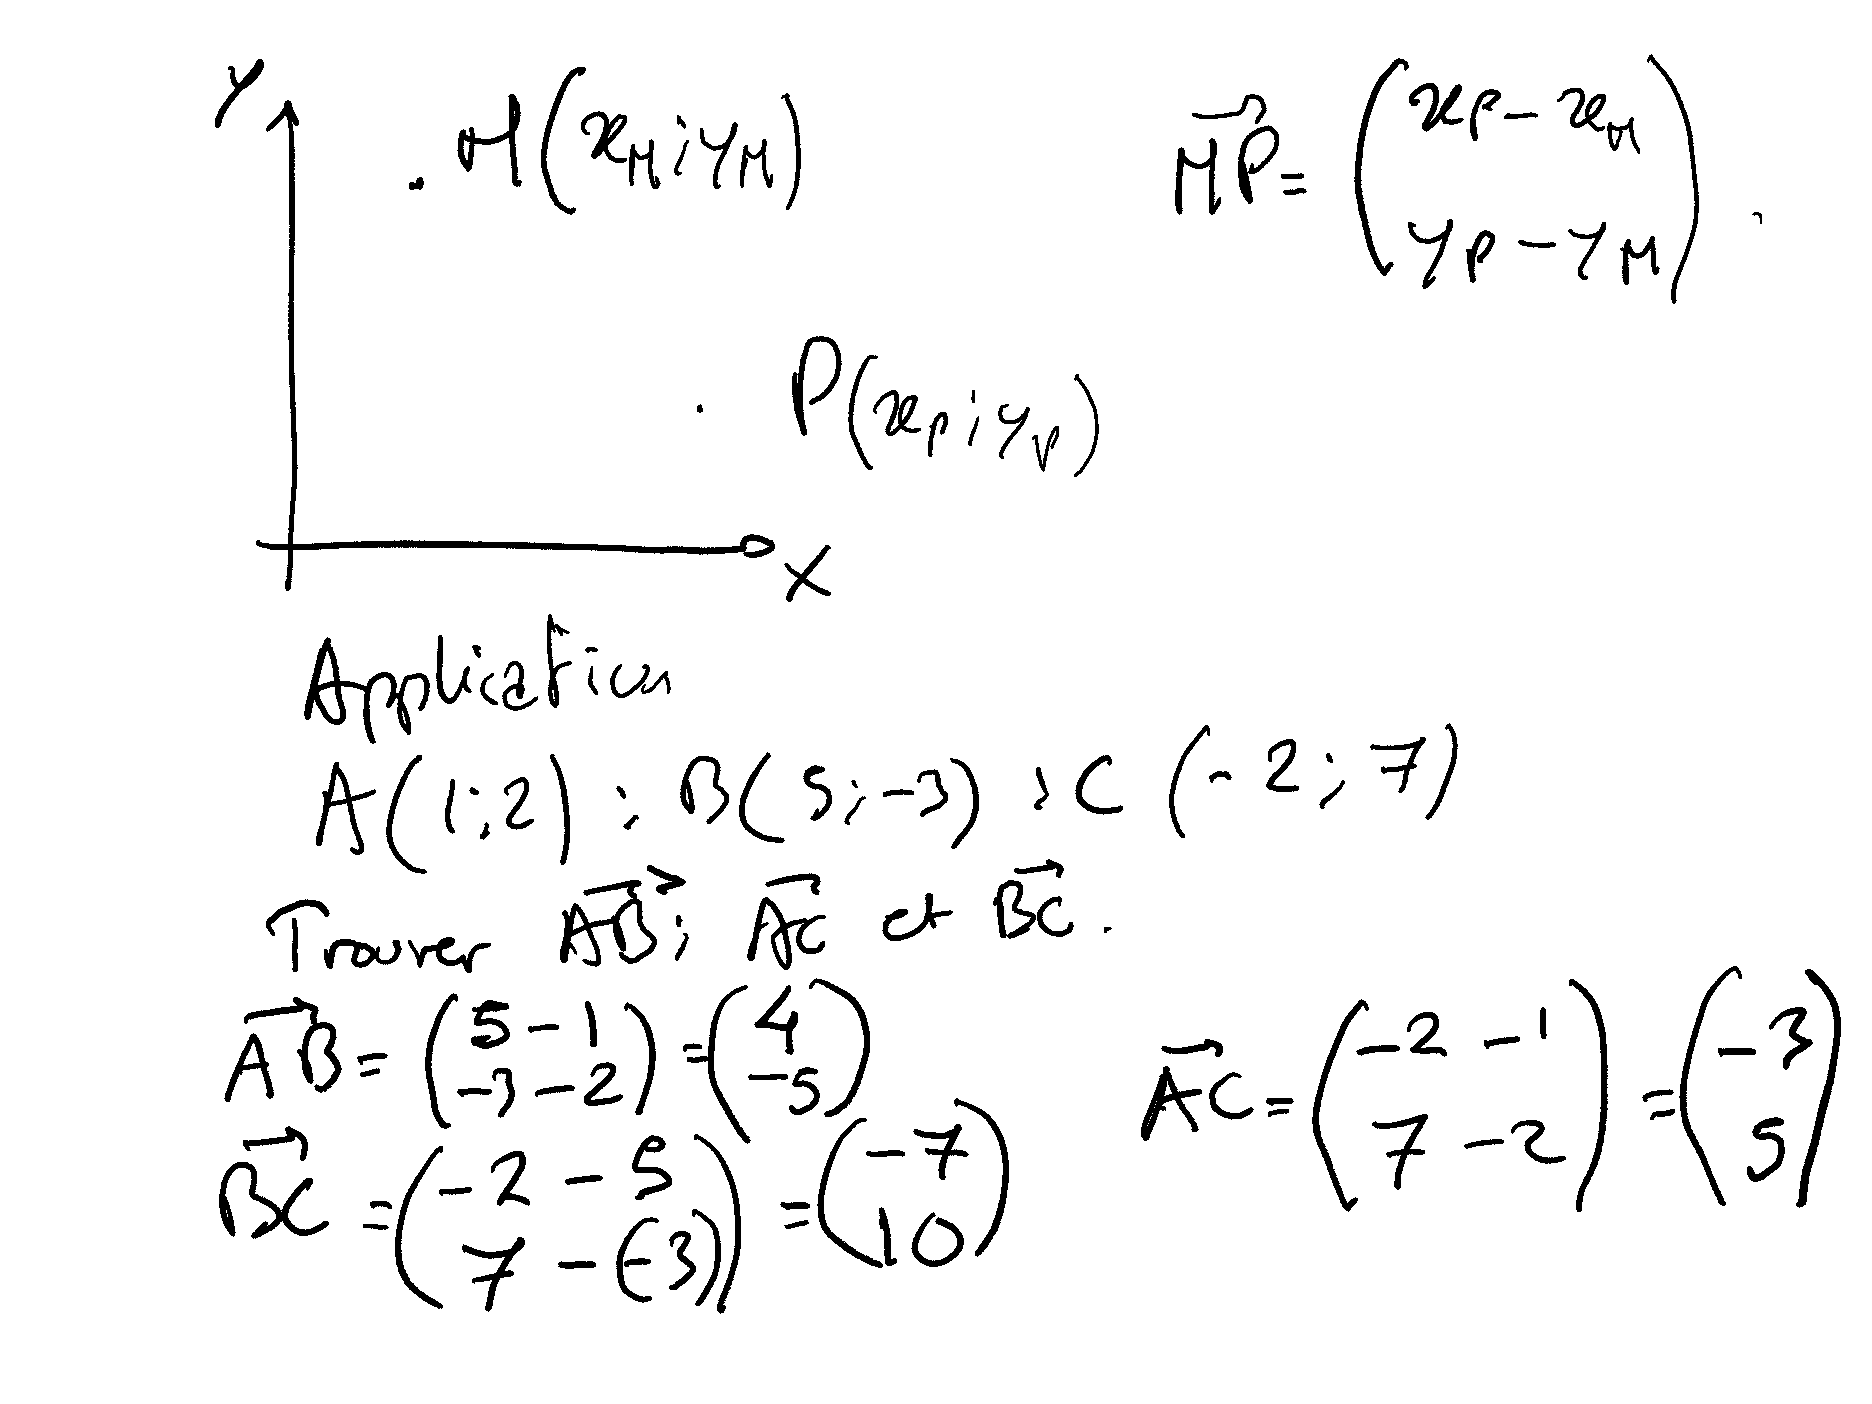 Y
M(x_M ; y_M)
\vec{MP} = \begin{pmatrix} x_P - x_M \\ y_P - y_M \end{pmatrix}
P(x_P ; y_P)
X
Application
A(1;2) ; B(5;-3) ; C(-2;7)
Trouver \vec{AB} ; \vec{AC} et \vec{BC}.
\vec{AB} = \begin{pmatrix} 5-1 \\ -3-2 \end{pmatrix} = \begin{pmatrix} 4 \\ -5 \end{pmatrix}
\vec{AC} = \begin{pmatrix} -2-1 \\ 7-2 \end{pmatrix} = \begin{pmatrix} -3 \\ 5 \end{pmatrix}
\vec{BC} = \begin{pmatrix} -2-5 \\ 7-(-3) \end{pmatrix} = \begin{pmatrix} -7 \\ 10 \end{pmatrix}